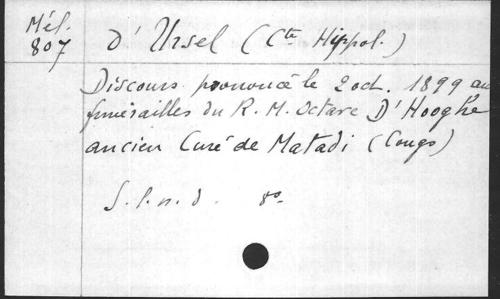 Mél.
807
D'Ursel (Cte Hippol.)
Discours prononcé le 2 oct. 1899 au
funérailles du R. M. Octave D'Hooghe
ancien Curé de Matadi (Congo)
S. l. n. d. 8o